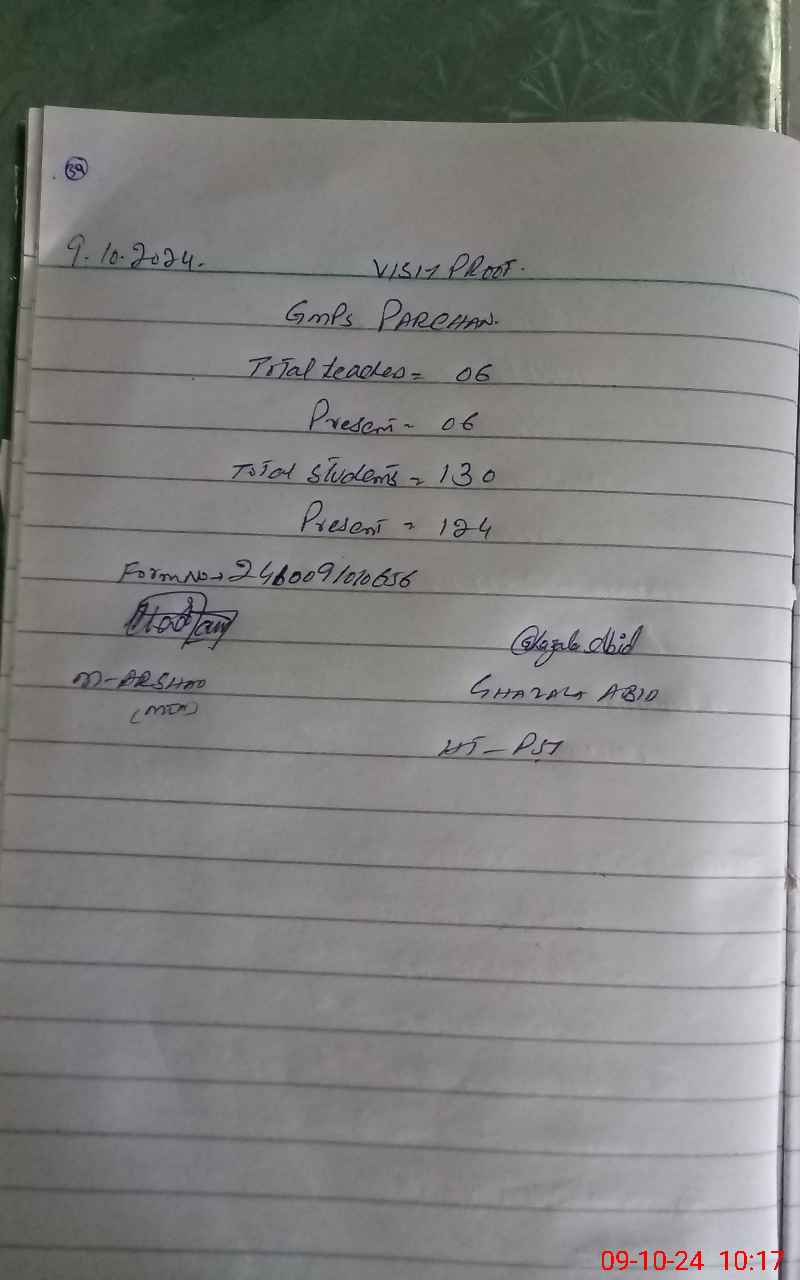 39
9.10.2024. VISIT PROOF.
GMPS PARCHAN.
Total teacher = 06
Present = 06
Total Students = 130
Present = 124
Form No →
Ghazala Abid
M-ARSHAD GHAZALA ABID
(MEA)
HT-PST
09-10-24 10:17